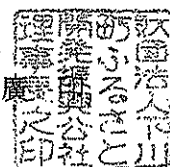 財團法人下川
町ふるさと
開発振興公社
理事長之印
廣